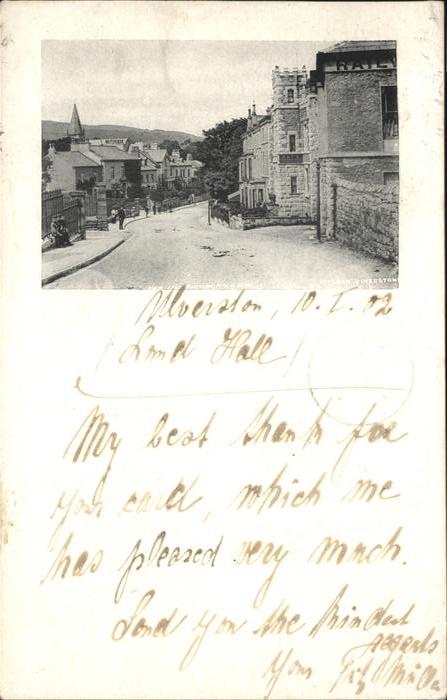 RAILW
ULVERSTON
Ulverston, 10. I. 02
(Lund Hall)
My best thank for
your card, which me
has pleased very much.
Send you the kindest
regards
Your